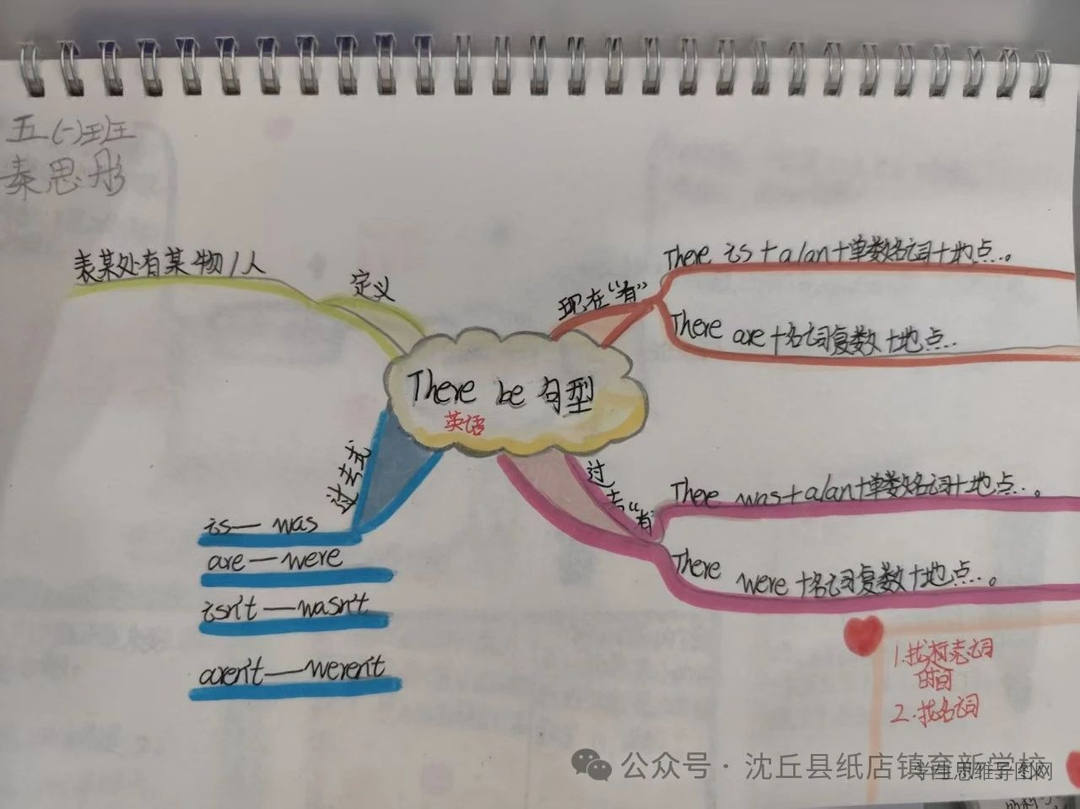 五(一)班
秦思彤
表某处有某物/人
定义
现在"有"
There is + a/an + 单数名词 + 地点...。
There are + 名词复数 + 地点...
There be 句型
英语
过去式
is — was
are — were
isn't — wasn't
aren't — weren't
过去"有"
There was + a/an + 单数名词 + 地点...。
There were + 名词复数 + 地点...。
1.找
的词
2.找名词
公众号 · 沈丘县纸店镇育新学校
学生思维导图网